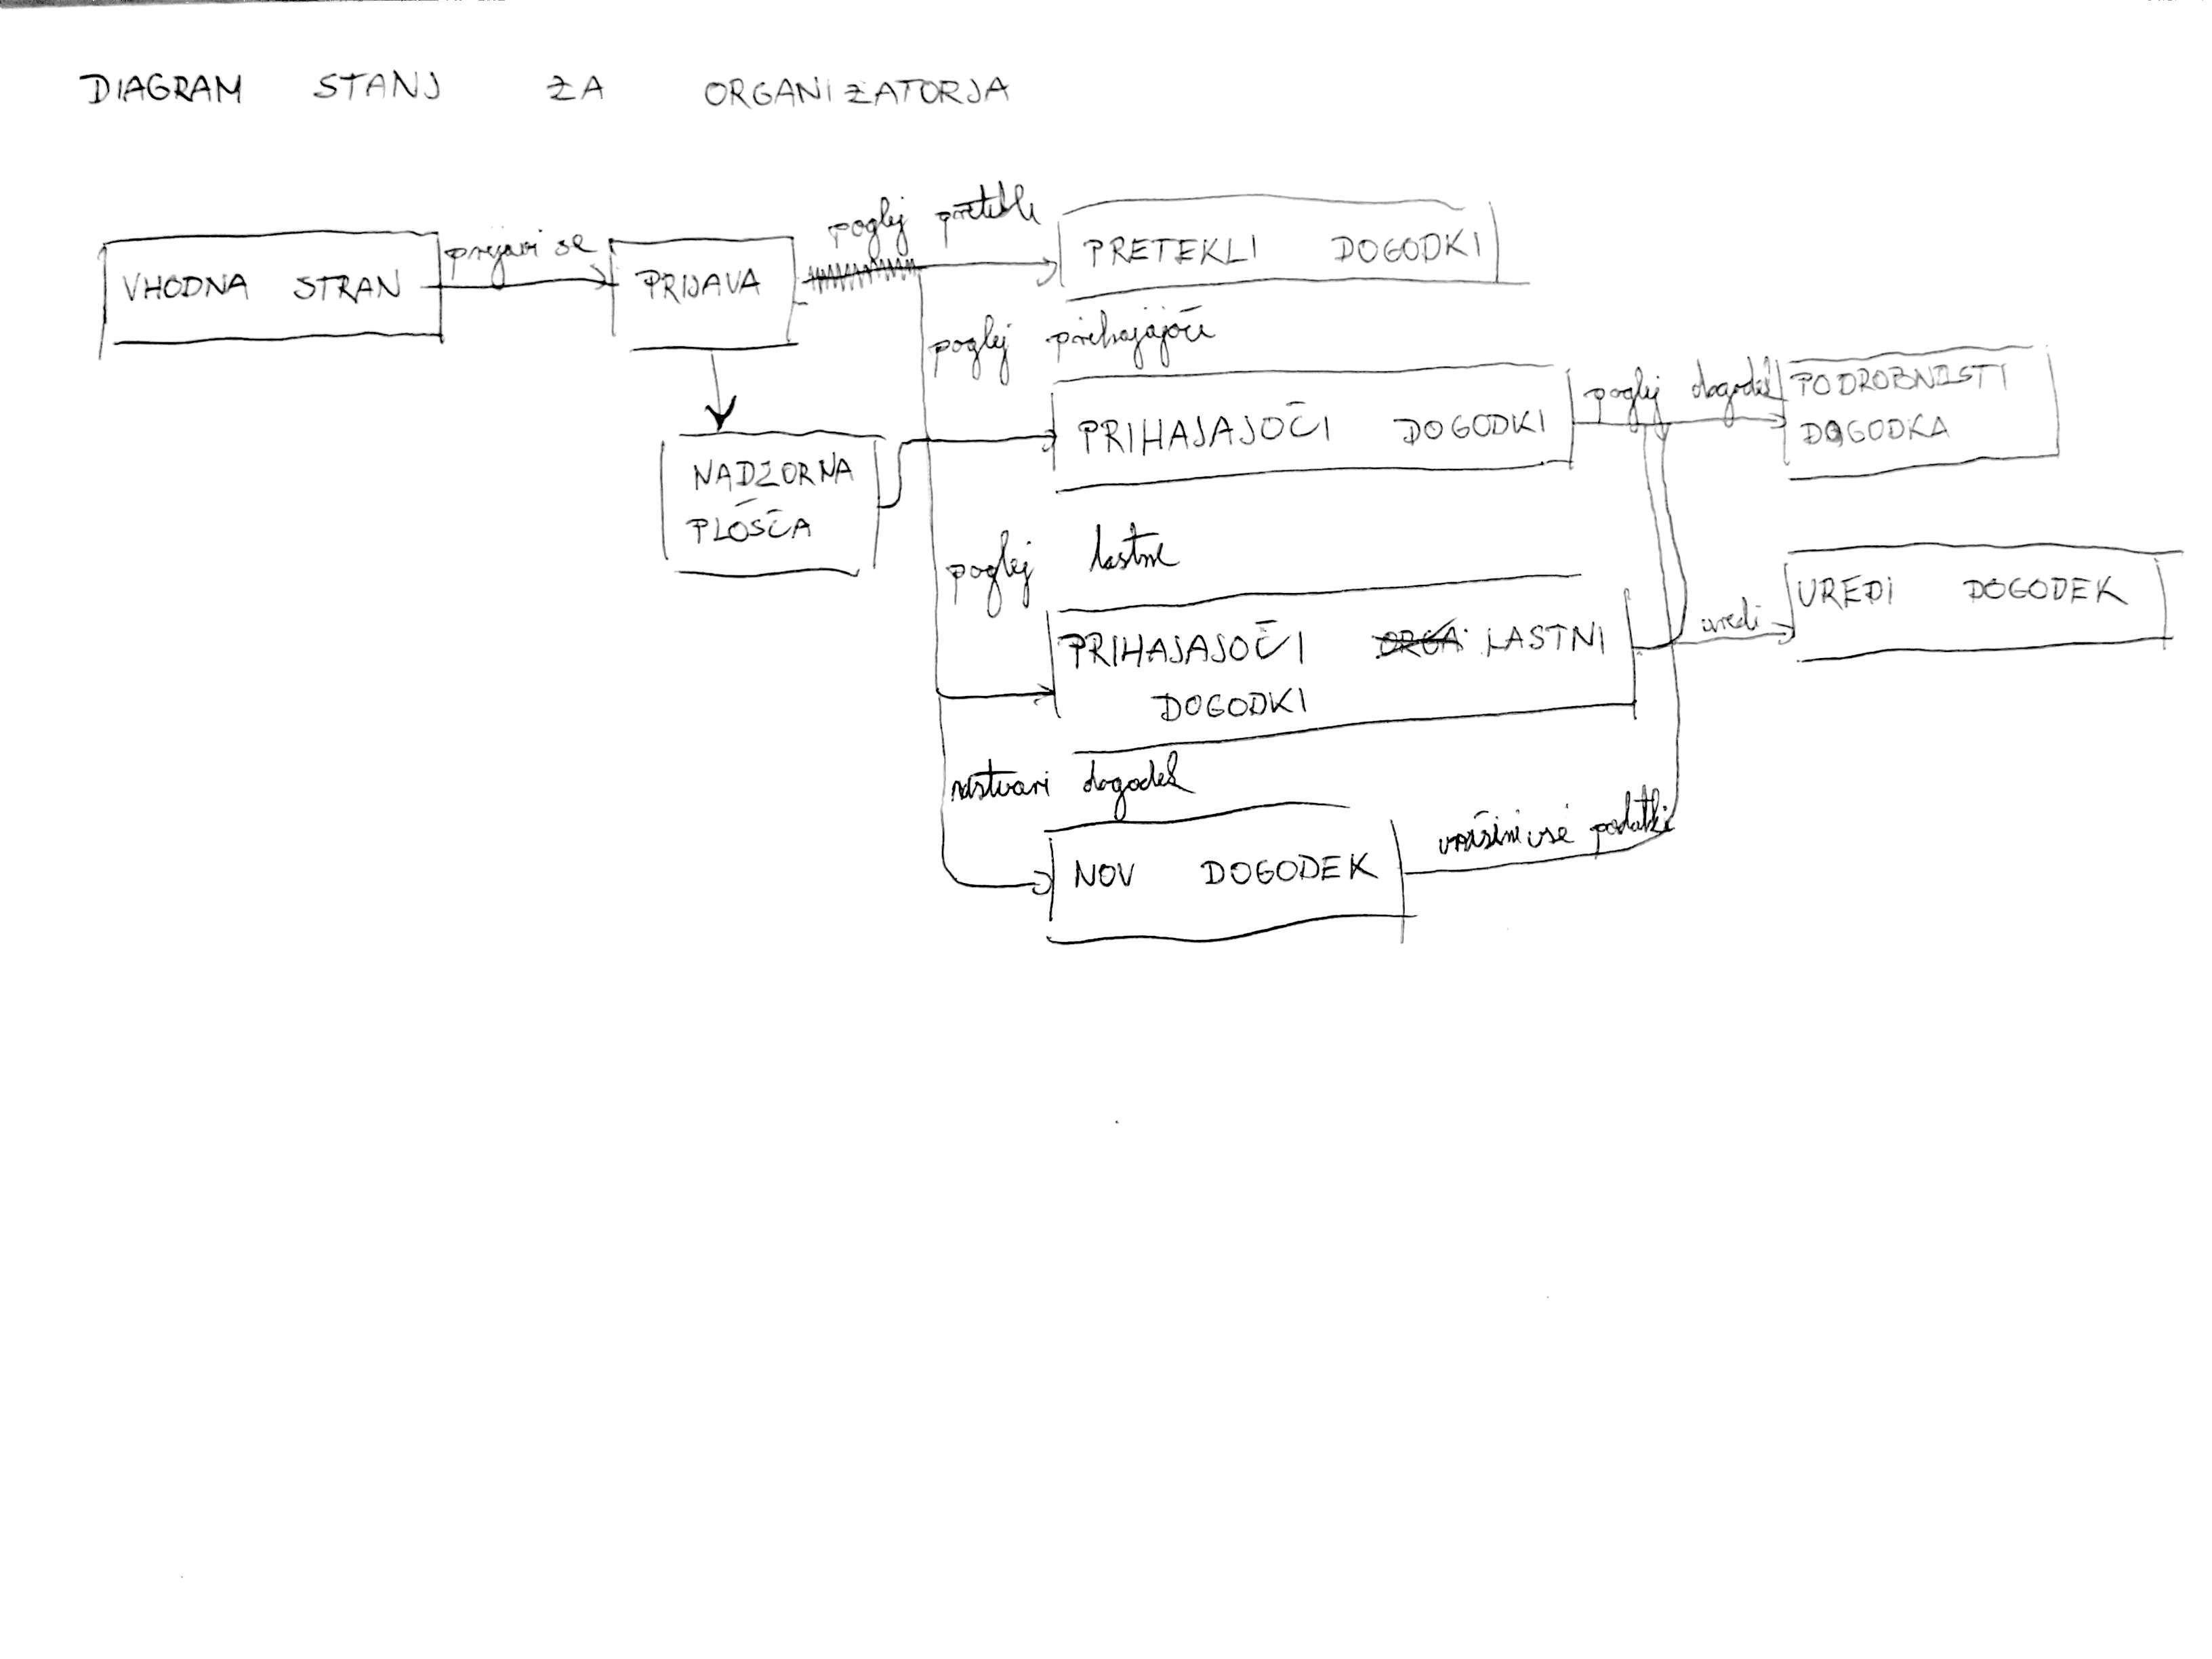 DIAGRAM STANJ ZA ORGANIZATORJA
VHODNA STRAN
prijavi se
PRIJAVA
poglej pretekle
PRETEKLI DOGODKI
poglej prihajajoče
PRIHAJAJOČI DOGODKI
poglej dogodek
PODROBNOSTI
DOGODKA
NADZORNA
PLOŠČA
poglej lastne
PRIHAJAJOČI LASTNI
DOGODKI
uredi
UREDI DOGODEK
ustvari dogodek
NOV DOGODEK
podatki